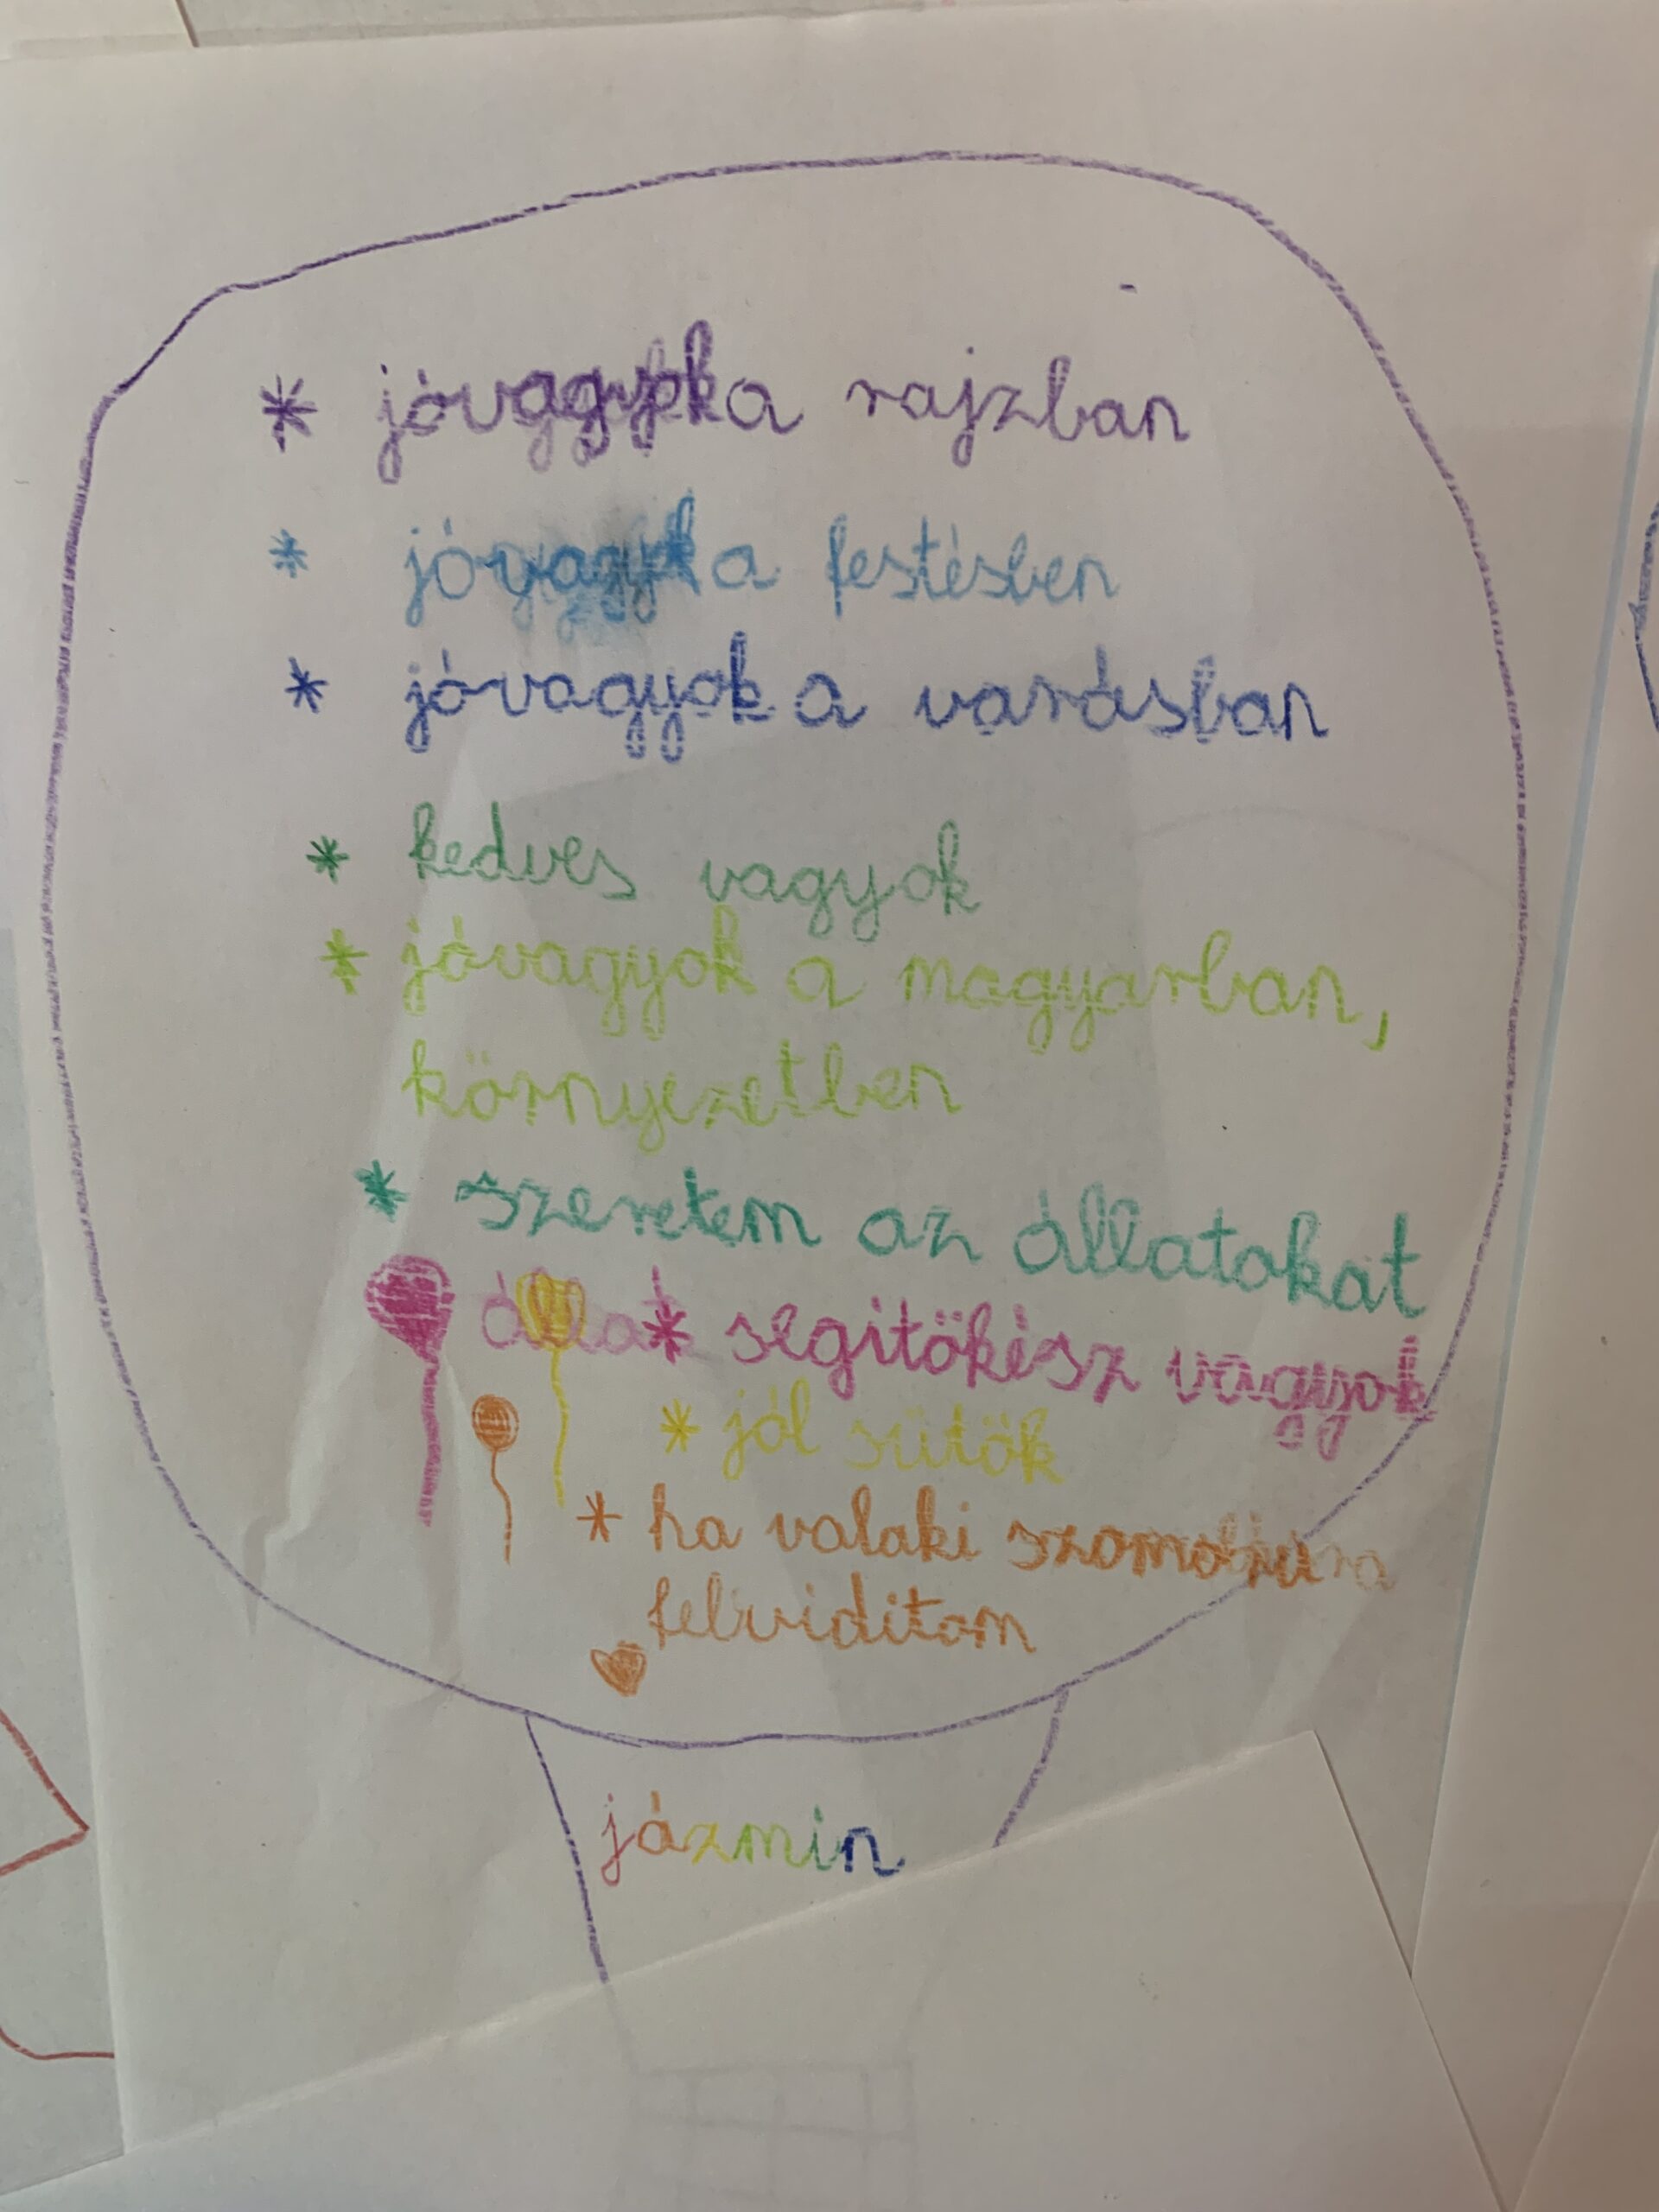 * jóvagyok a rajzban
* jóvagyok a festésben
* jóvagyok a varásban
* kedves vagyok
* jóvagyok a magyarban,
környezetben
* szeretem az állatokat
* segitőkész vagyok
* jól sütök
* ha valaki
felviditom
jázmin